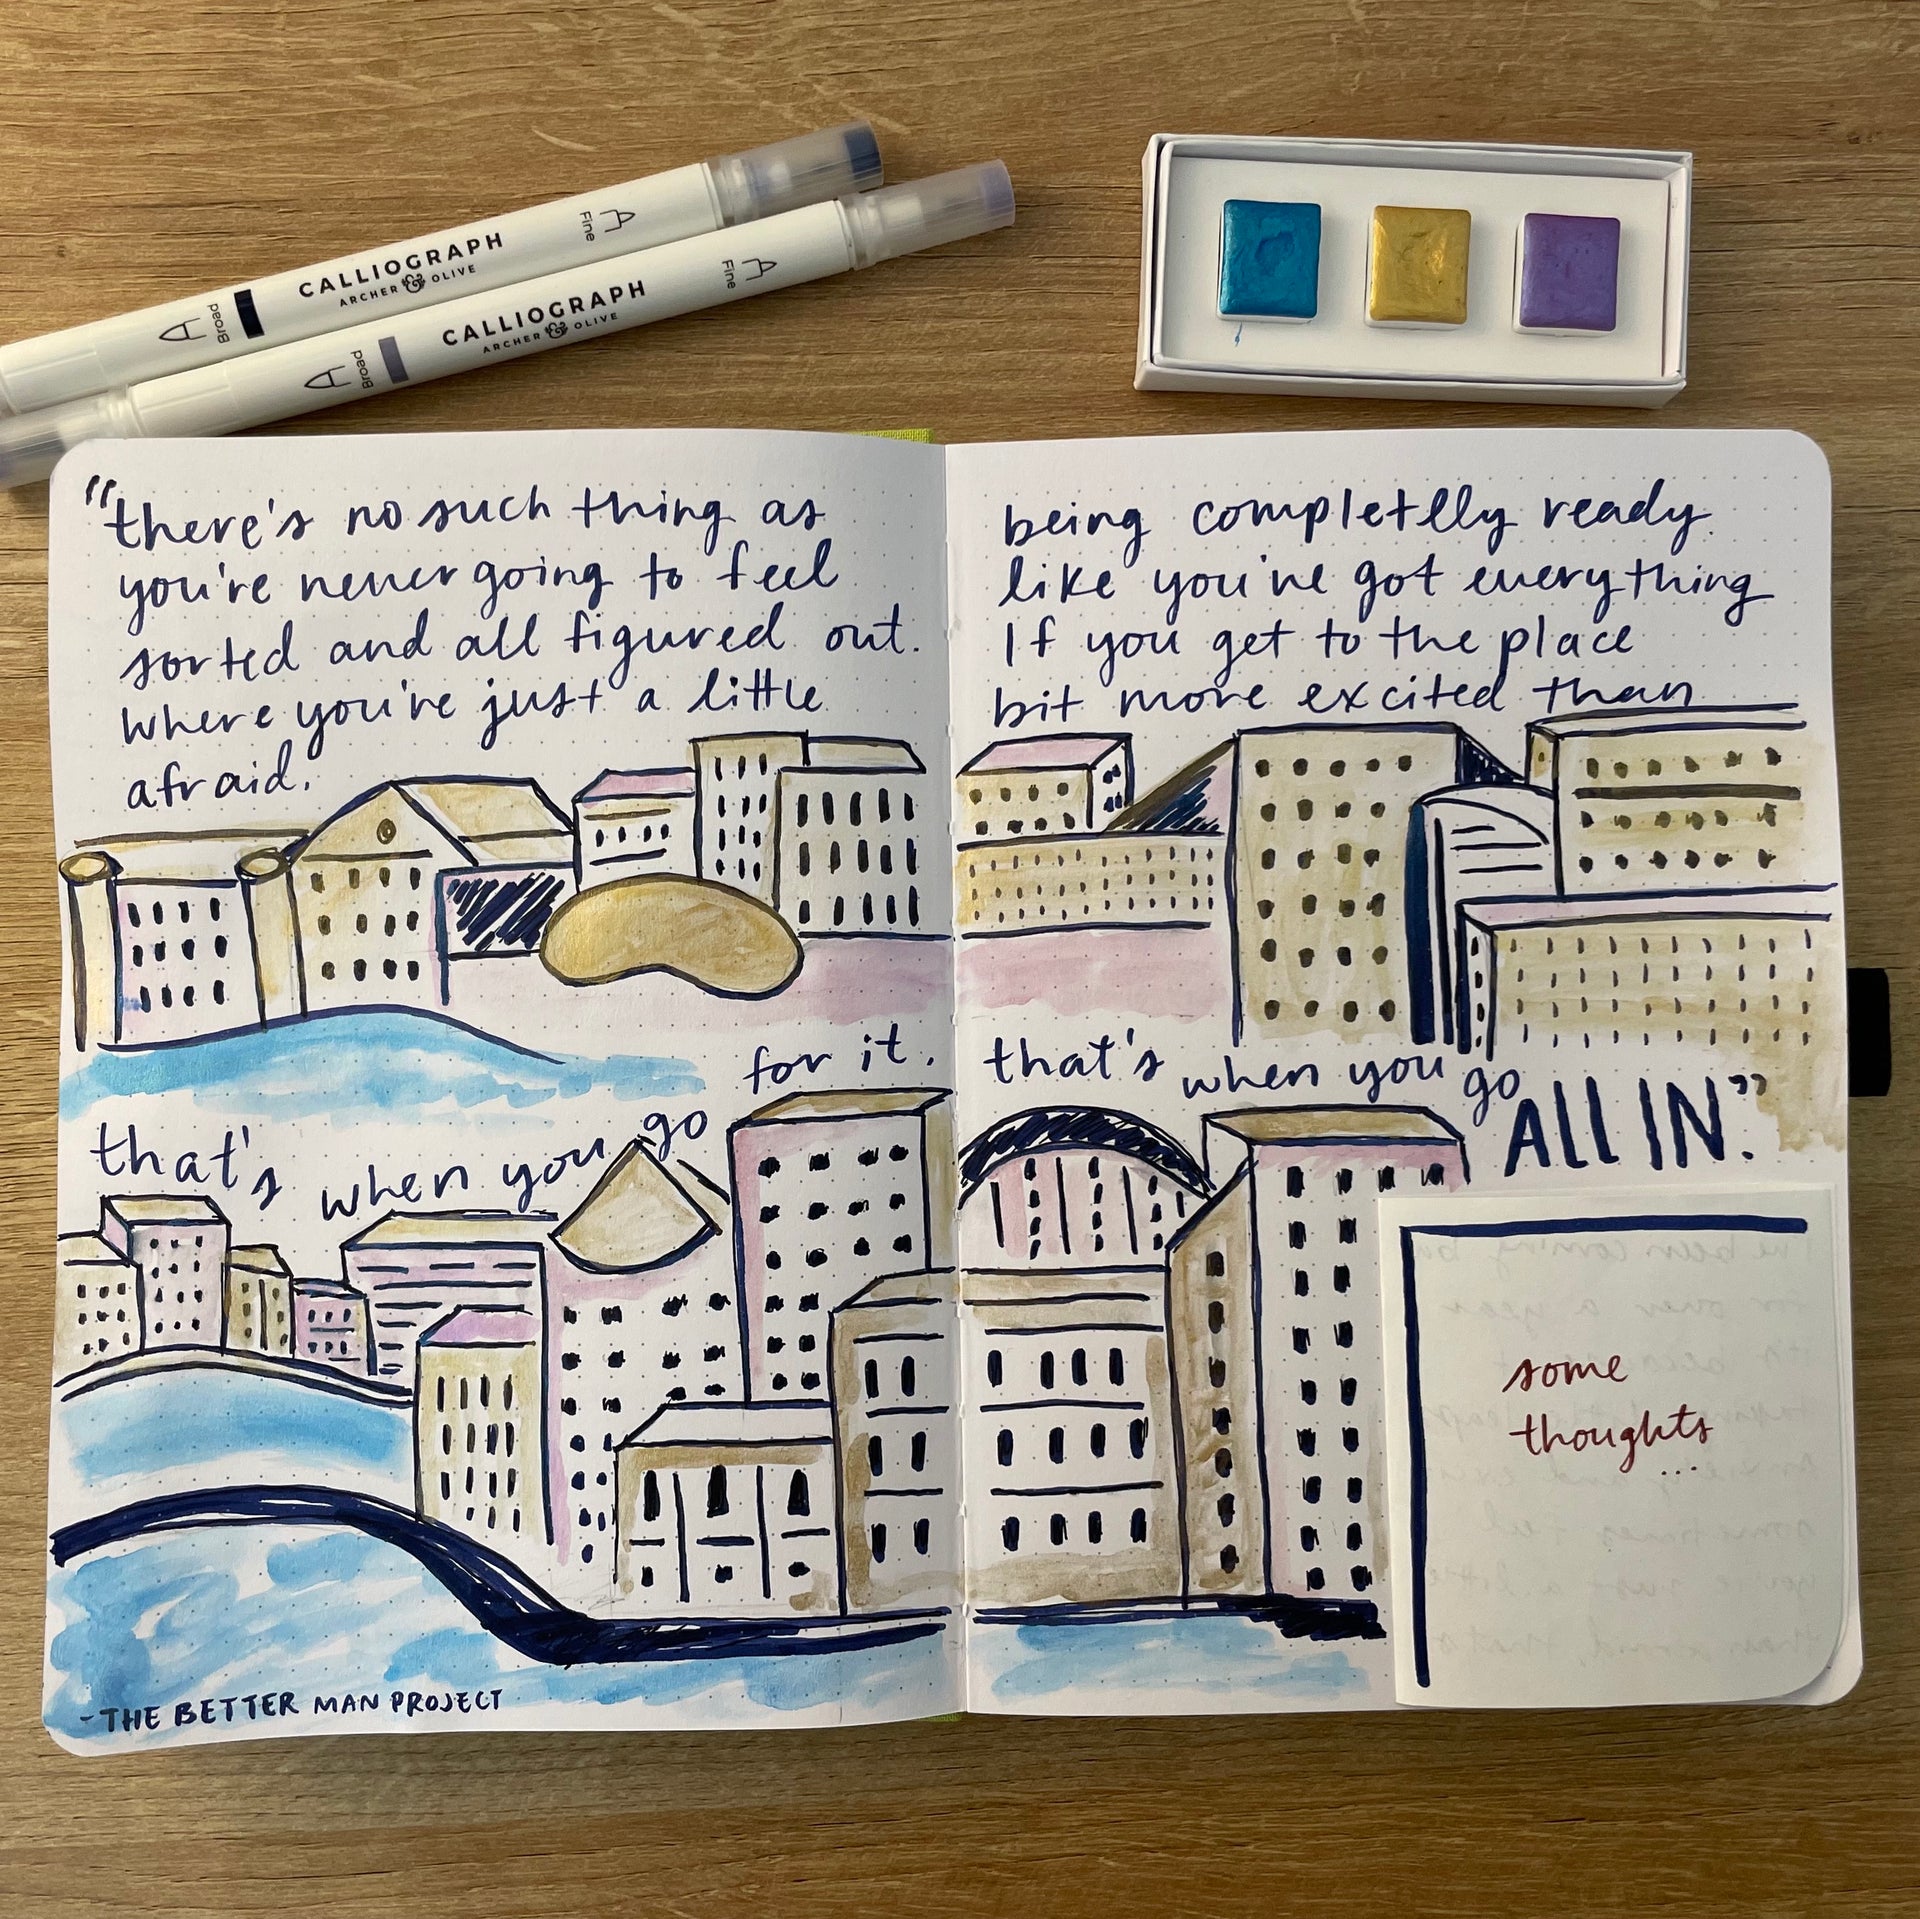 Fine
CALLIOGRAPH
ARCHER & OLIVE
Broad
Fine
CALLIOGRAPH
ARCHER & OLIVE
Broad
"there's no such thing as being completely ready.
you're never going to feel like you've got everything
sorted and all figured out. If you get to the place
where you're just a little bit more excited than
afraid.
that's when you go for it. that's when you go ALL IN."
some
thoughts
...
- THE BETTER MAN PROJECT